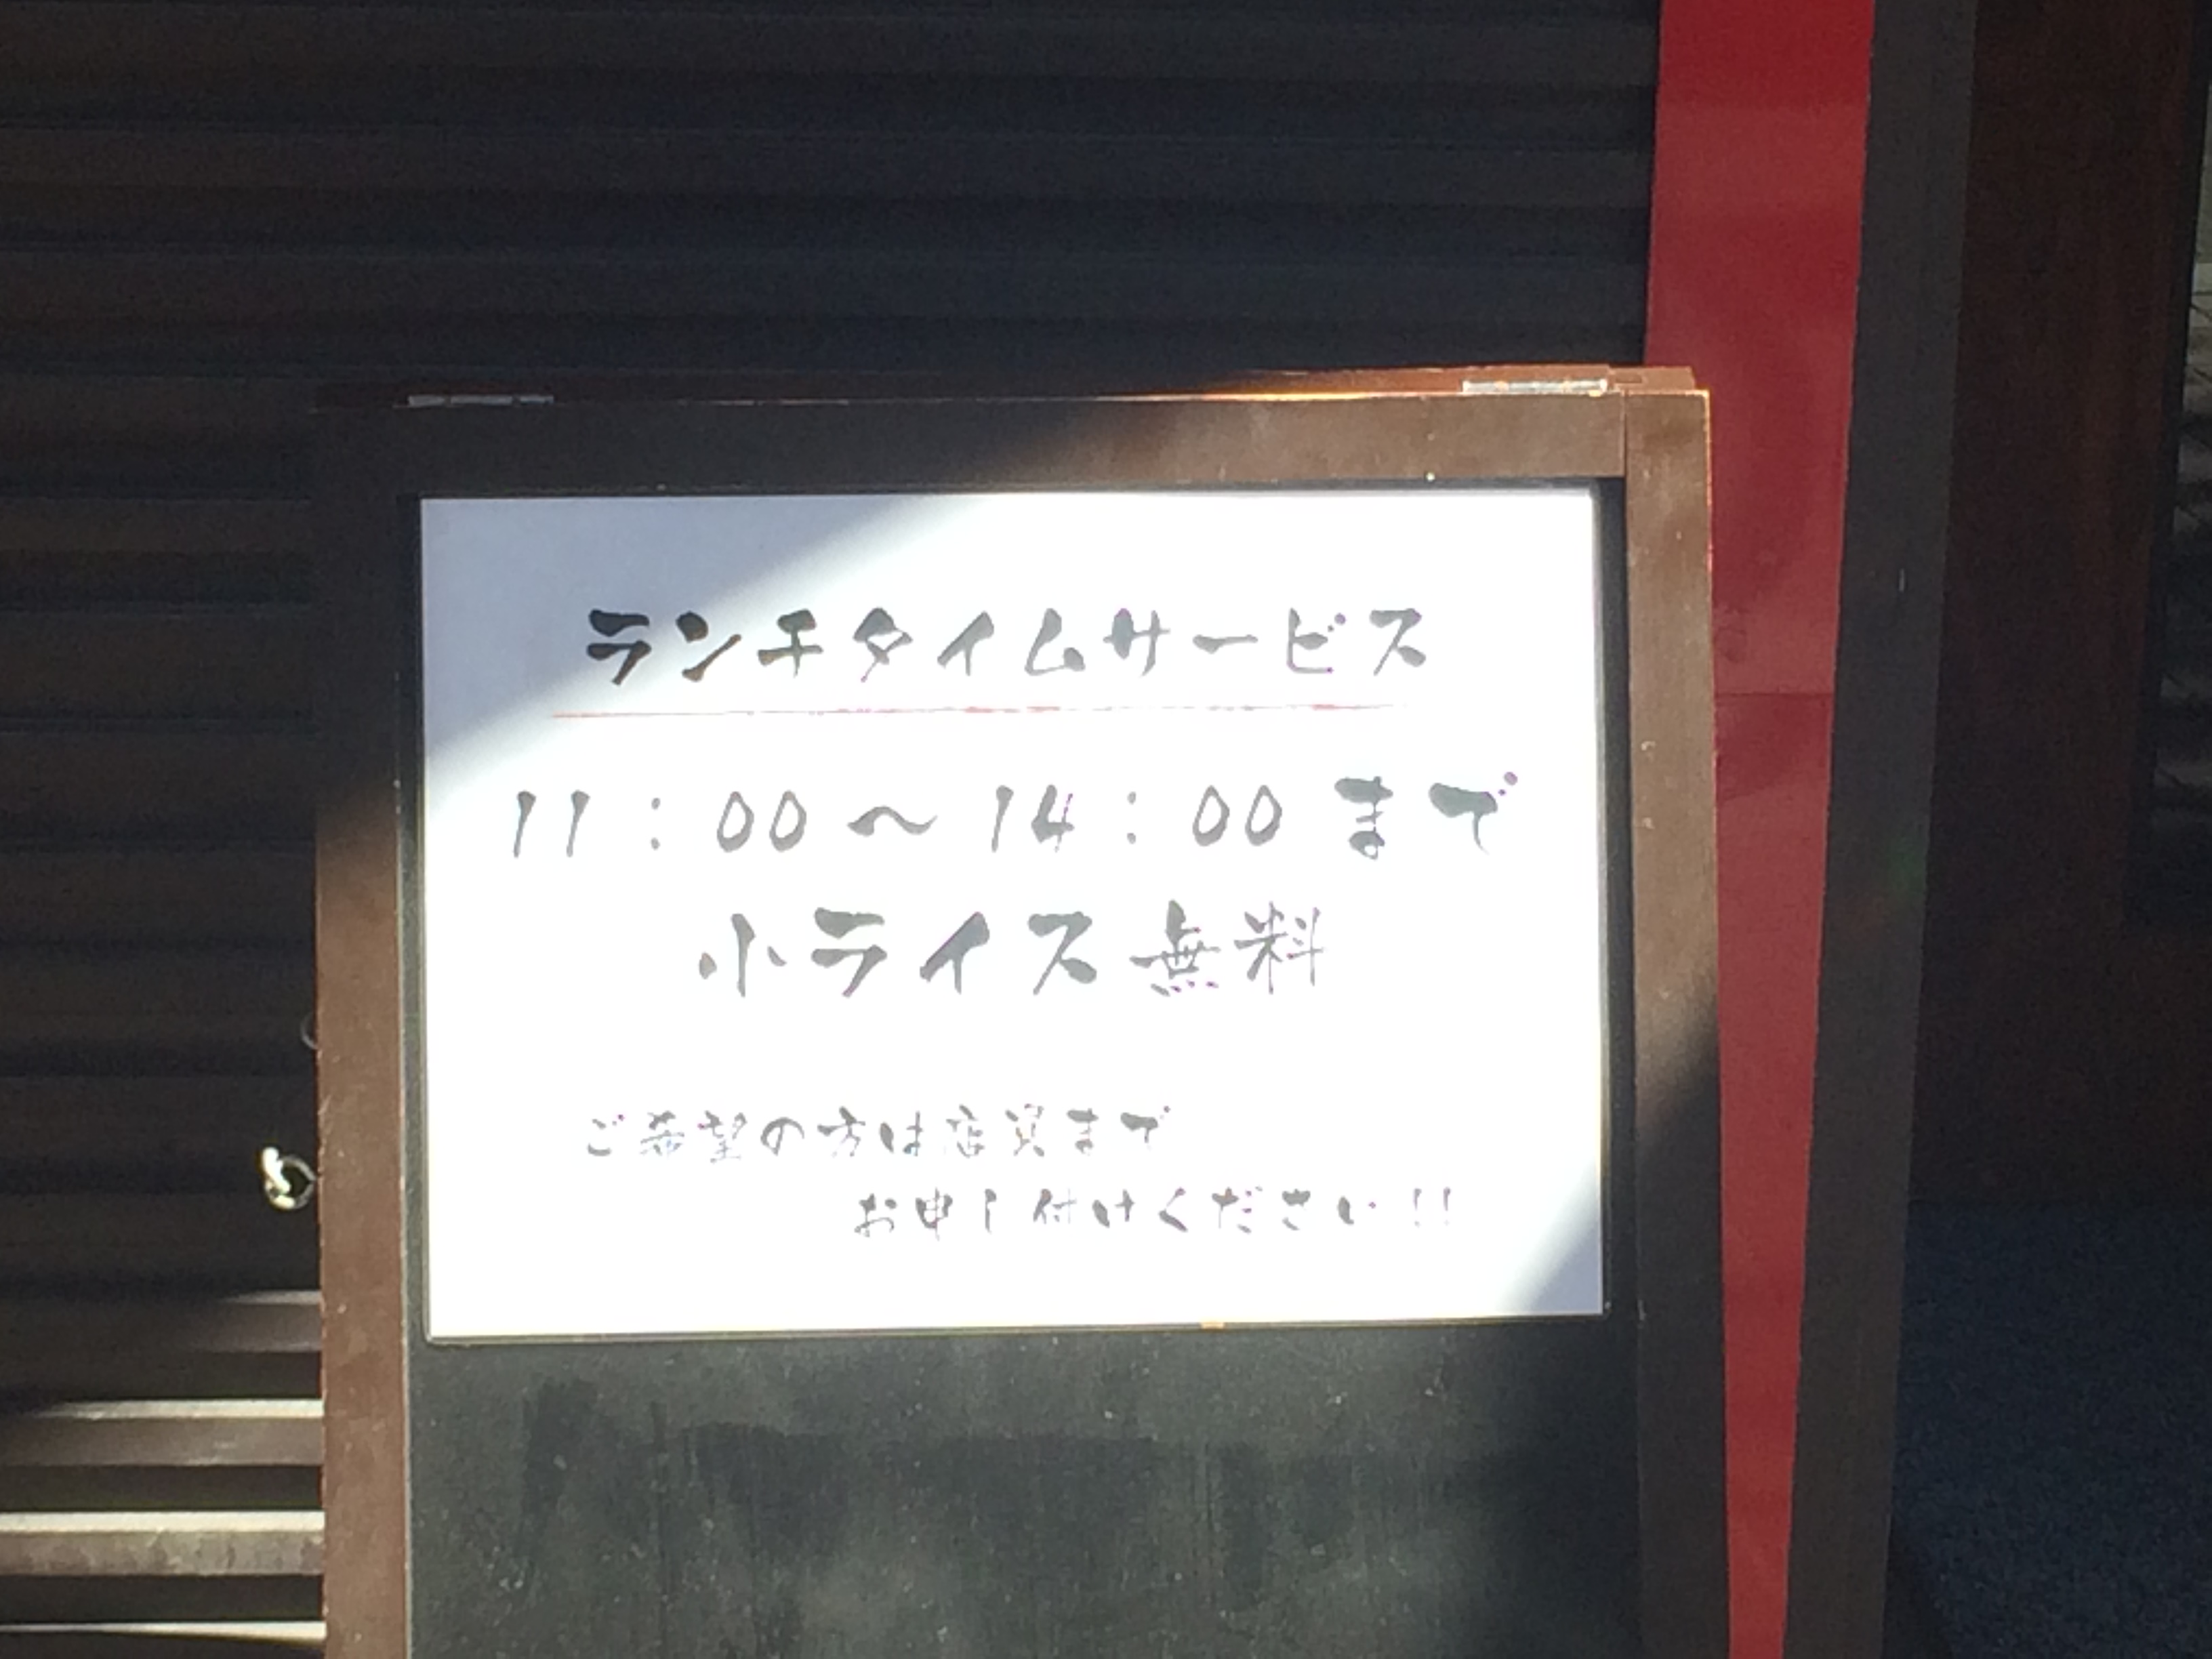 ランチタイムサービス
11:00～14:00まで
小ライス無料
ご希望の方は店員まで
お申し付けください!!